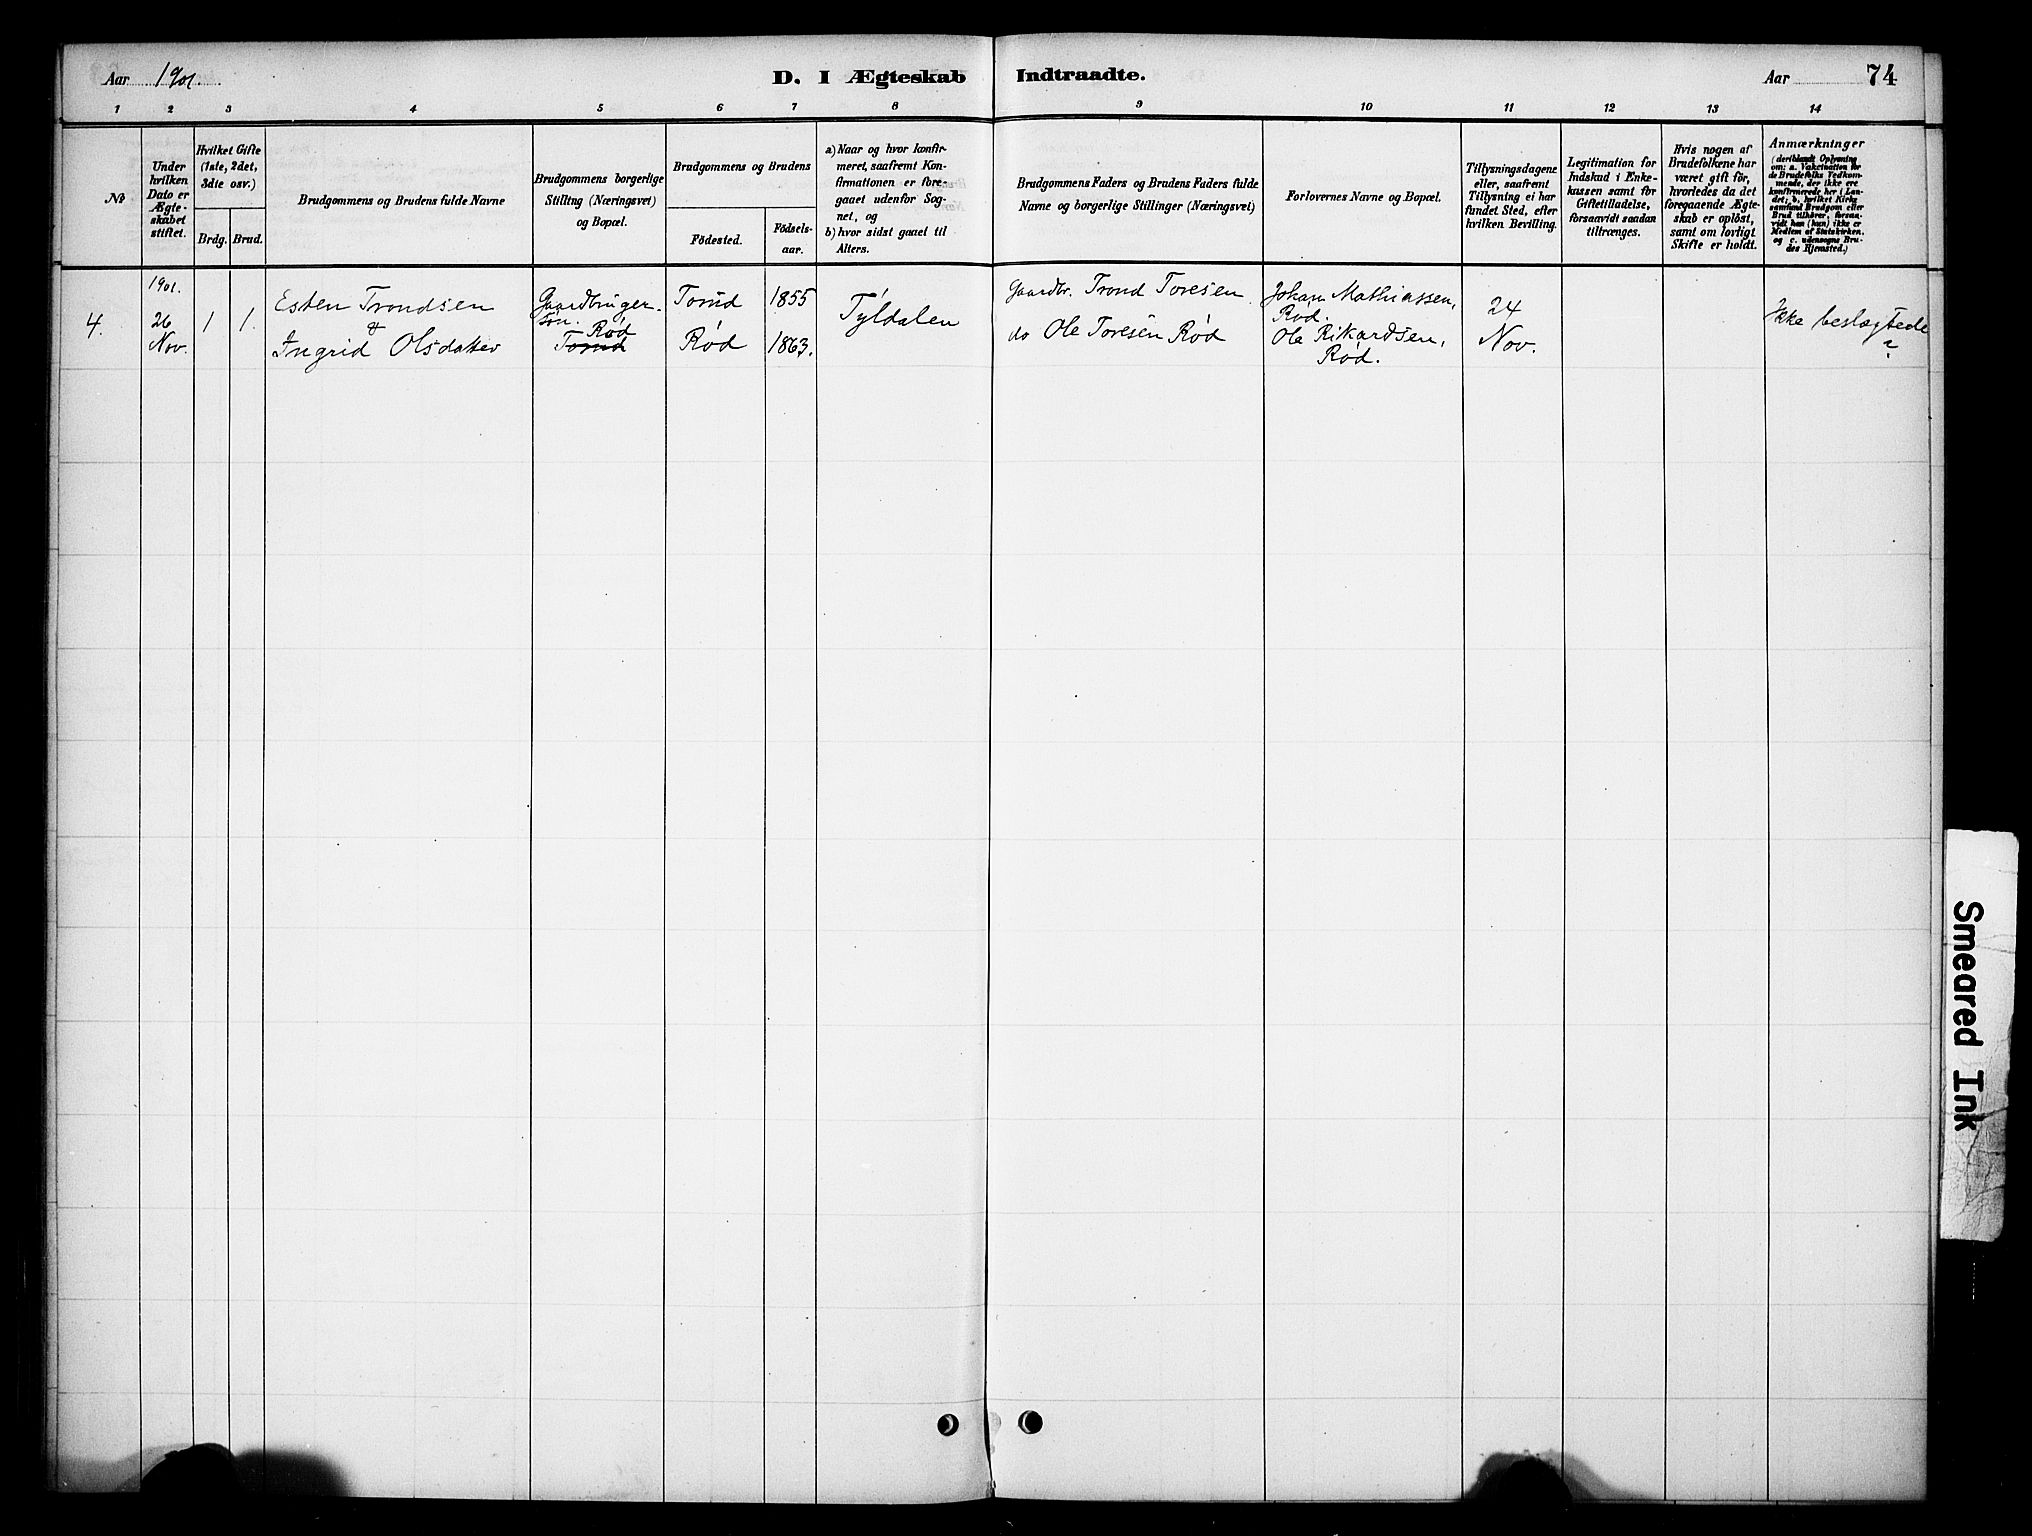 Aar 1901.
D. I Ægteskab Indtraadte.
Aar
74
1 2 3 4 5 6 7 8 9 10 11 12 13 14
№
Under
hvilken
Dato er
Ægte-
skabet
stiftet.
Hvilket Gifte
(1ste, 2det,
3die osv.)
Brdg. Brud.
Brudgommens og Brudens fulde Navne
Brudgommens borgerlige
Stilling (Næringsvei)
og Bopæl.
Brudgommens og Brudens
Födested.
Födsels-
aar.
a) Naar og hvor konfir-
meret, saafremt Kon-
firmationen er fore-
gaaet udenfor Sog-
net, og
b) hvor sidst gaaet til
Alters.
Brudgommens Faders og Brudens Faders fulde
Navne og borgerlige Stillinger (Næringsvei)
Forlovernes Navne og Bopæl.
Tillysningsdagene
eller, saafremt
Tillysning ei har
fundet Sted, efter
hvilken Bevilling.
Legitimation for
Indskud i Enke-
kassen samt for
Giftetilladelse,
forsaavidt saadan
tiltrænges.
Hvis nogen af
Brudefolkene har
været gift för,
hvorledes da det
foregaaende Ægte-
skab er oplöst,
samt om lovligt
Skifte er holdt.
Anmærkninger
(deriblandt Oplysning
om: a. Vakcination for
de Brudefolks Vedkom-
mende, der ikke ere
konfirmerede her i Lan-
det; b. hvilket Kirke
samfund Brudgom eller
Brud tilhörer, forsaa-
vidt han (hun) ikke er
Medlem af Statskirken.
og c. udensogns Bru-
des Hjemsted.)
4.
1901.
26
Nov.
1 1.
Esten Trondsen
&
Ingrid Olsdatter
Gaardbruger-
søn. Rød
Torud
Torud 1855
Rød 1863.
Tyldalen
Gaardbr. Trond Toresen
do Ole Toresen Rød
Johan Mathiassen,
Rød.
Ole Rikardsen,
Rød.
24
Nov.
Ikke beslægtede
?
Smeared Ink